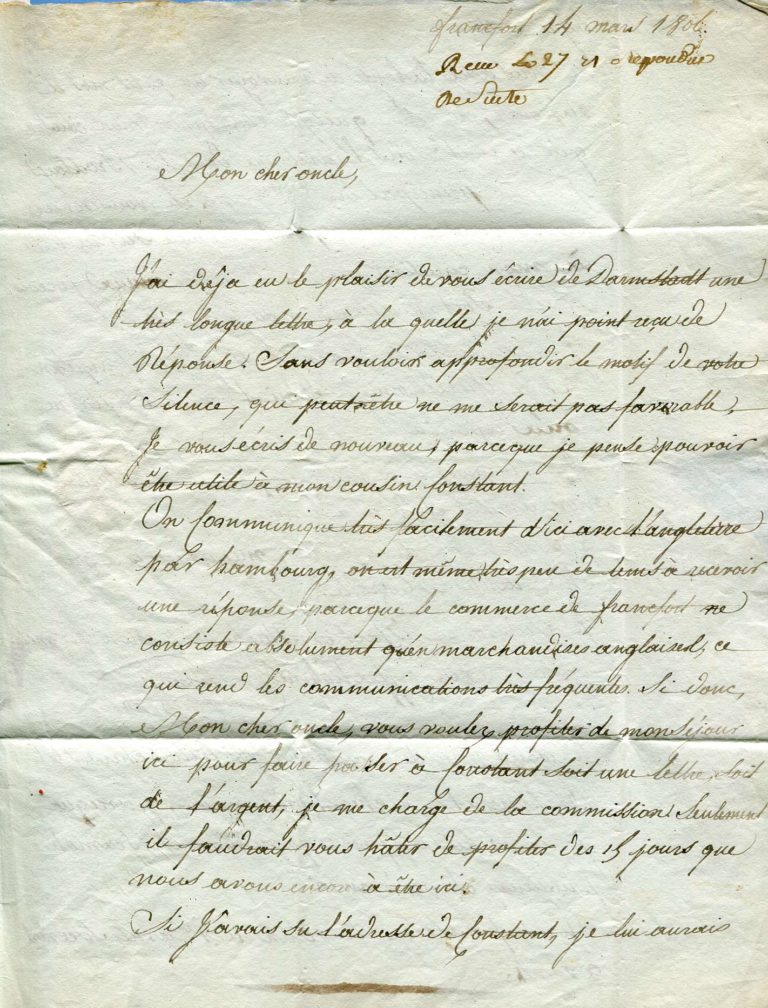 francfort 14 mars 1806.
Recu Le 27 et repondue
De Suite
Mon cher oncle,
J'ai dêja eu le plaisir de vous écrire de Darmstadt une
très longue lettre, à la quelle je n'ai point reçu de
Réponse. Sans vouloir approfondir le motif de votre
Silence, qui peutêtre ne me serait pas favorable,
Je vous écris de nouveau, parceque je pense pouvoir
être utile à mon cousin Constant.
On Communique très facilement d'ici avec l'angleterre
par hambourg, on est même très peu de tems a recevoir
une réponse, parceque le commerce de francfort ne
consiste absolument qu'en marchandises anglaises, ce
qui rend les communications très fréquentes. Si donc,
Mon cher oncle, vous voulez profiter de mon séjour
ici pour faire passer à Constant soit une lettre, soit
de l'argent, je me charge de la commission. Seulement
il faudrait vous hâter de profiter des 15 jours que
nous avons encore à être ici.
Si J'avais su l'adresse de Constant, je lui aurais